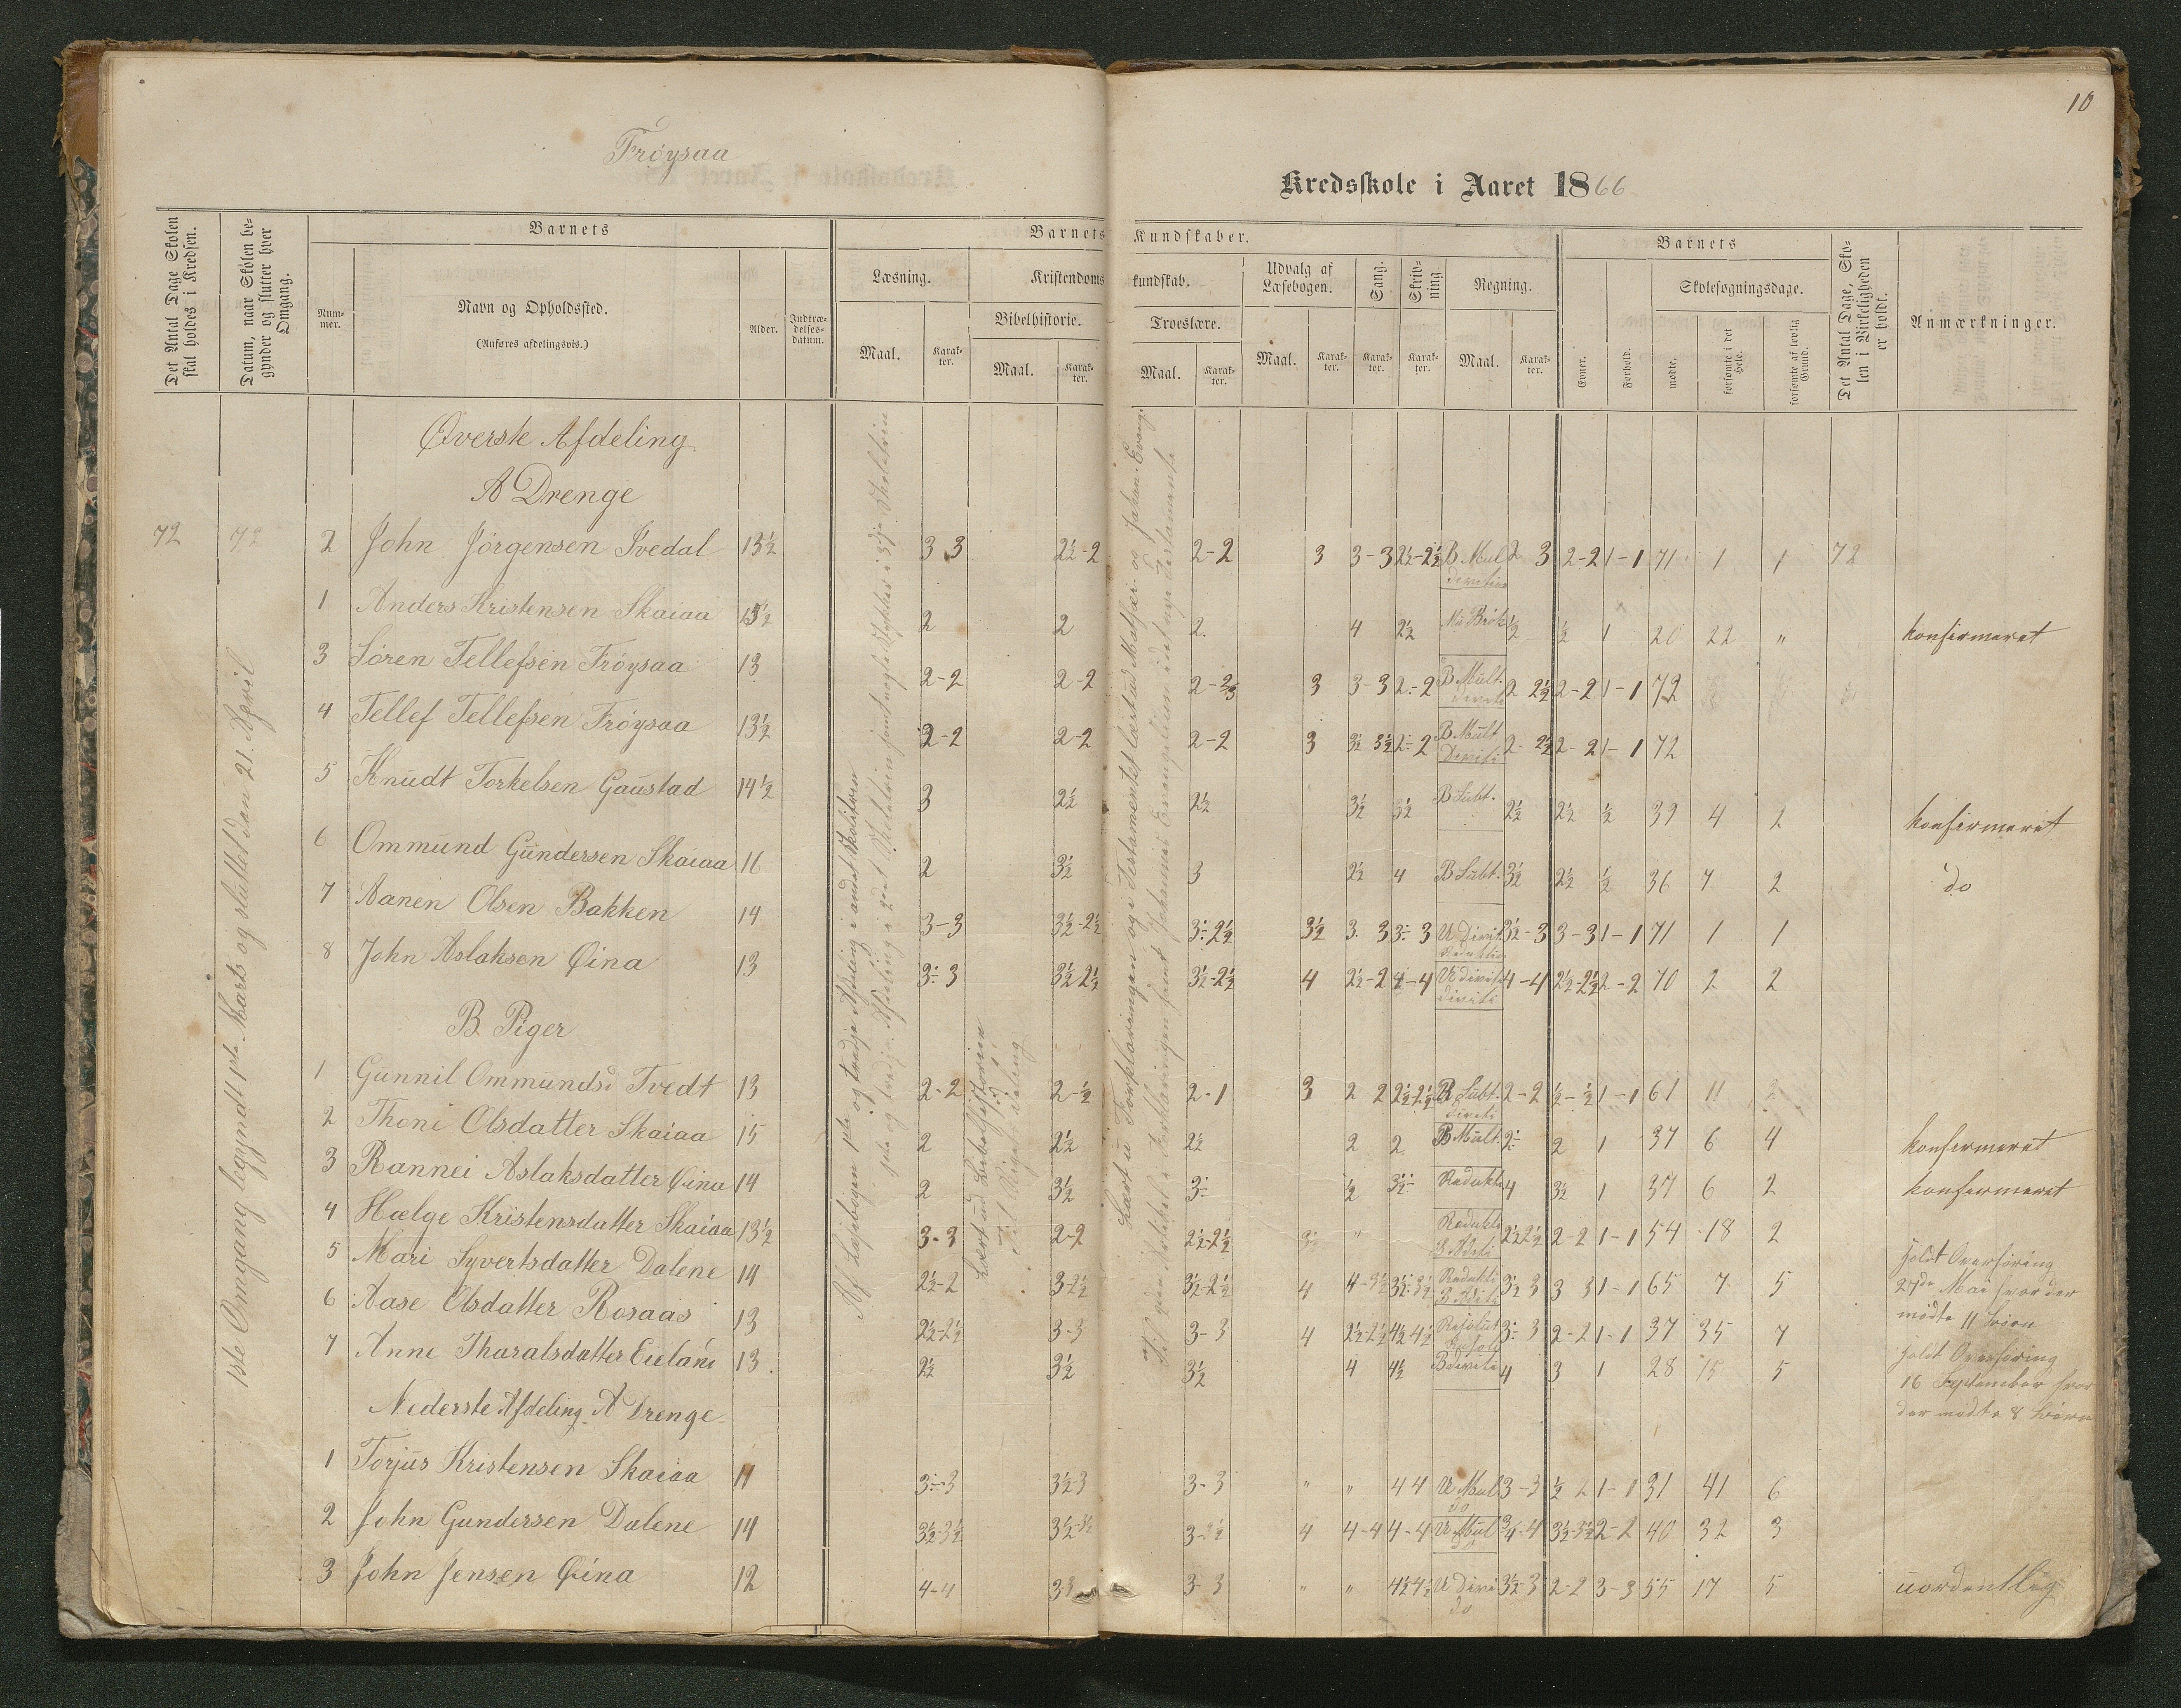 10
Frøysaa
Kredsskole i Aaret 1866
Det Antal Dage Skolen skal holdes i Kredsen.
Datum, naar Skolen begynder og slutter hver Omgang.
Barnets
Nummer.
Navn og Opholdssted.
(Anføres afdelingsvis.)
Alder.
Indtrædelsesdatum.
Barnets Kundskaber.
Læsning.
Maal.
Karakter.
Kristendomskundskab.
Bibelhistorie.
Maal.
Karakter.
Troeslære.
Maal.
Karakter.
Udvalg af Læsebogen.
Maal.
Karakter.
Sang.
Karakter.
Skrivning.
Karakter.
Regning.
Maal.
Karakter.
Barnets
Evner.
Forhold.
Skolesøgningsdage.
mødte.
forsømte i det Hele.
forsømte af lovlig Grund.
Det Antal Dage, Skolen i Virkeligheden er holdt.
Anmærkninger.
1ste Omgang begyndt 1ste Marts og sluttet den 21. April
Øverste Afdeling
A Drenge
72 72 2 John Jörgensen Ivedal 13½ 3 3 2½-2 2-2 3 3-3 2½-2½ B Mul 2 3 2-2 1-1 71 1 1 72
1 Anders Kristensen Skaiaa 15½ 2 2 2. 4 2½ ½ ½ 1 20 22 „ konfirmeret
3 Sören Tellefsen Fröysaa 13 2-2 2-2 3 3-3 2-2 B Mult. 2 2½ 2-2 1-1 72
4 Tellef Tellefsen Fröysaa 13½ 2-2 2-2 2-2 3 3½ 3½ 2-2 B Mult 2-2½ 2-2 1-1 72
5 Knudt Torkelsen Gaustad 14½ 3 2½ 2½ 3½ 3½ B Subt. 2½ 2½ ½ 39 4 2 konfirmeret
6 Ommund Gundersen Skaiaa 16 2 3½ 3 2½ 4 B Subt. 3½ 2½ ½ 36 7 2 do
7 Aanen Olsen Bakken 14 3-3 3½-2½ 3-2½ 3½ 3. 3 3 3 U Divit 3½-3 3-3 1-1 71 1 1
8 John Aslaksen Øina 13 3-3 3½ 2½ 3½-2½ 4 2½-2 4-4 4-4 2½-2½ 2-2 70 2 2
B. Piger
1 Gunnil Ommundsd Tvedt 13 2-2 2-½ 2-1 3 2 2 2½-2½ B Subt. 2-2 ½-½ 1-1 61 11 2
2 Thoni Olsdatter Skaiaa 15 2 2½ 2½ 2 2 B Mult. 2 2 1 37 6 4 konfirmeret
3 Rannei Aslaksdatter Øina 14 2 3½ 3 ½ 3½ Redukti 4 3½ 1 37 6 2 konfirmeret
4 Hælge Kristensdatter Skaiaa 13½ 3-3 2-2 2½-2½ 3½ „ Redukti 2½ 2½ 2-2 1-1 54 18 2
5 Mari Syvertsdatter Dalene 14 2½-2 3-2½ 3½-2½ 4 4-3½ 3½-3½ Redukti 3½ 3 3 3 1-1 65 7 5
6 Aase Olsdatter Rosaas 13 2½-2½ 3-3 3-3 4 2½-2½ 4½ 4½ 3-3 2-2 1-1 37 35 7
7 Anne Tharalsdatter Eieland 13 2½ 3½ 3½ 4 4½ B diviti 4 3 1 28 15 5
holdt Overhöring
27de Mai hvor der
mödte 11 börn
holdt Overhöring
16 September hvor
der mödte 8 börn
Nederste Afdeling A Drenge
1 Torjus Kristensen Skaiaa 11 3-3 3½-3 3-3 „ „ 4 4 U Mul 3-3 ½ 2 1-1 31 41 6
2 John Gundersen Dalene 14 3½-3½ 3½-3½ 3-3½ 4 4-4 4-4 U Mul 3½-4 3½-3½ 2-2 40 32 3
3 John Jensen Øina 12 4-4 3 3 3-3 „ „ 4½ 4½ U Divi 3½-3 2-2 3-3 55 17 5 uordentlig